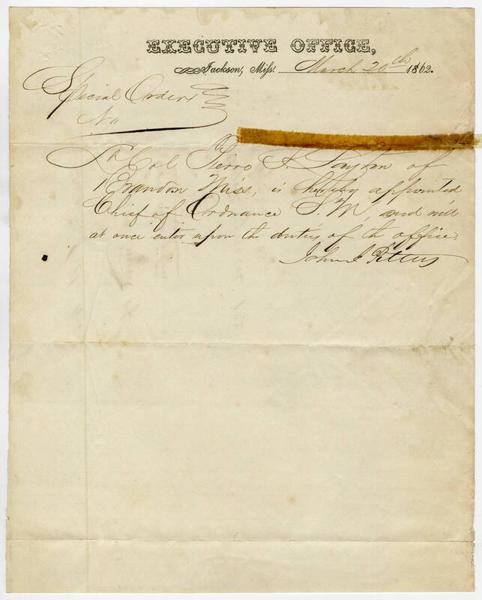 EXECUTIVE OFFICE,
Jackson, Miss. March 20th 1862.
Special Orders
No
Col of
Brandon Miss, is hereby appointed
Chief of Ordnance S. M, and will
at once enter upon the duties of the office.
John J Pettus